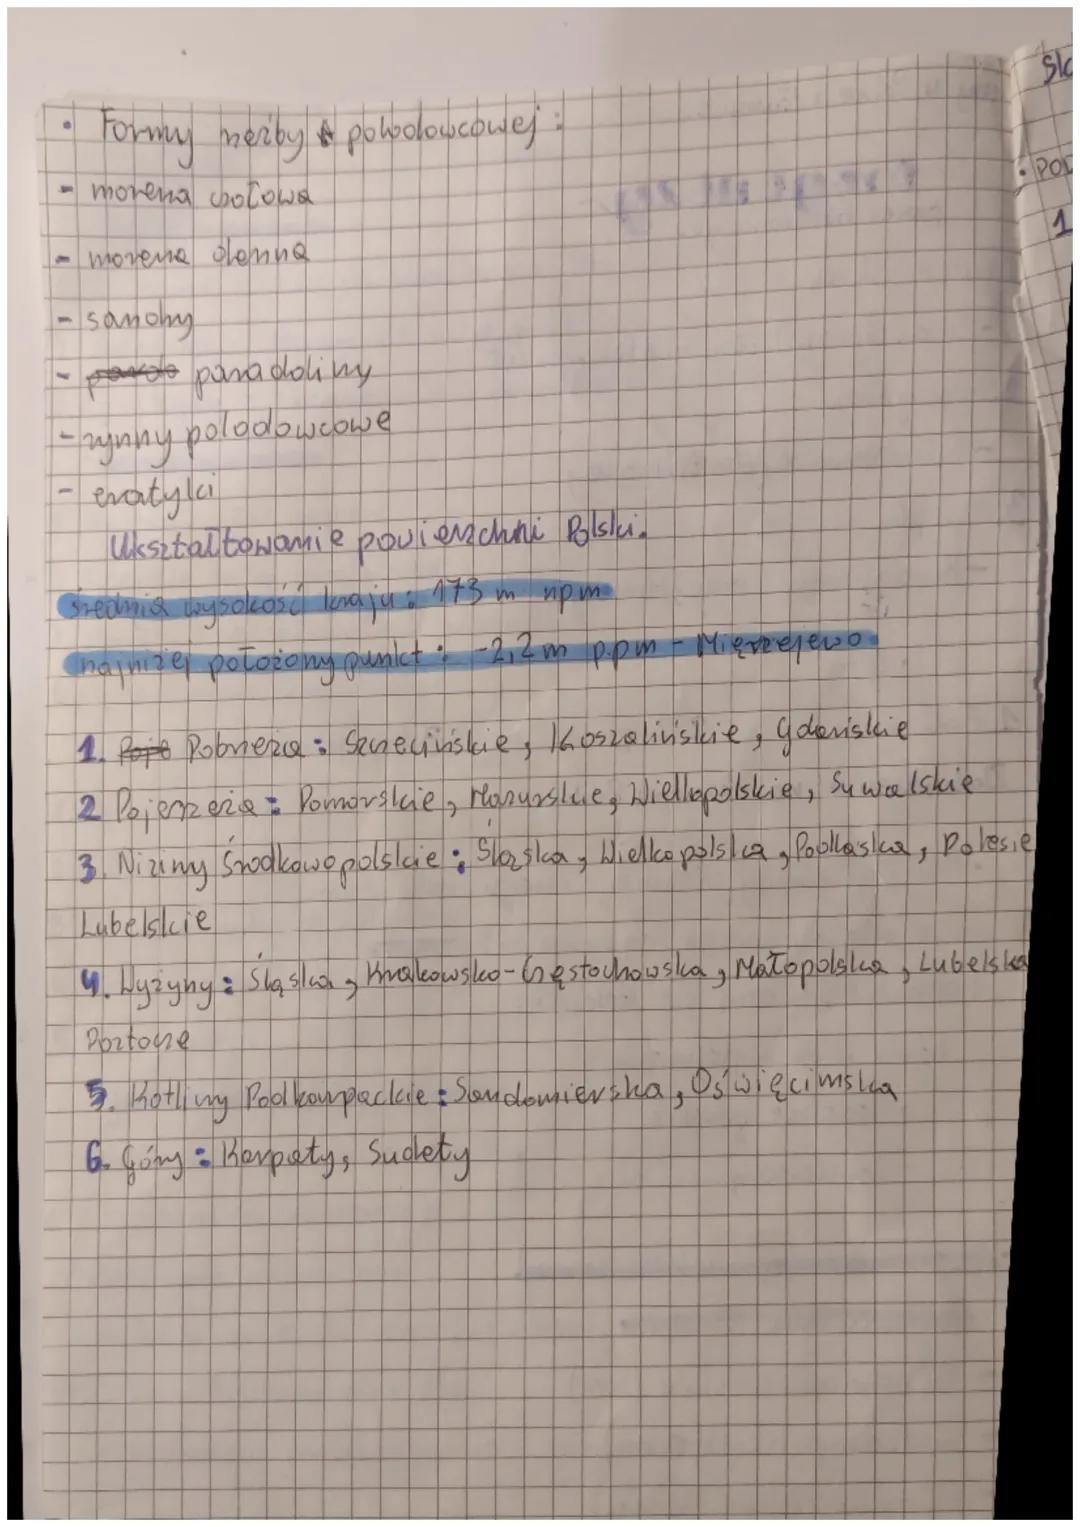 • Formy rzeźby polodowcowej:
- morena czołowa
- morena denna
- sandry
- pradoliny
- rynny polodowcowe
- eratyki
Ukształtowanie powierzchni Polski.
średnia wysokość kraju: 173 m npm
najniżej położony punkt: -2,2 m p.pm -
1. Pobrzeża: Szczecińskie, Koszalińskie, Gdańskie
2 Pojezerzeża: Pomorskie, Mazurskie, Wielkopolskie, Suwalskie
3. Niziny Środkowopolskie: Śląska, Wielkopolska, Podlaska, Polesie
Lubelskie
4. Wyżyny: Śląska, Krakowsko-Częstochowska, Małopolska, Lubelska
Roztocze
5. Kotliny Podkarpackie: Sandomierska, Oświęcimska
6. Góry: Karpaty, Sudety
1